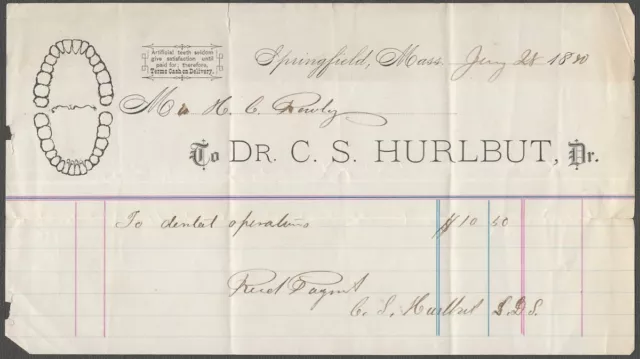 Artificial teeth seldom
give satisfaction until
paid for; therefore,
Terms Cash on Delivery.
Springfield, Mass. 28 1880
H. C.
To DR. C. S. HURLBUT, Dr.
To dental operations $10 50
Recd Paymt
C. S. Hurlbut D.D.S.